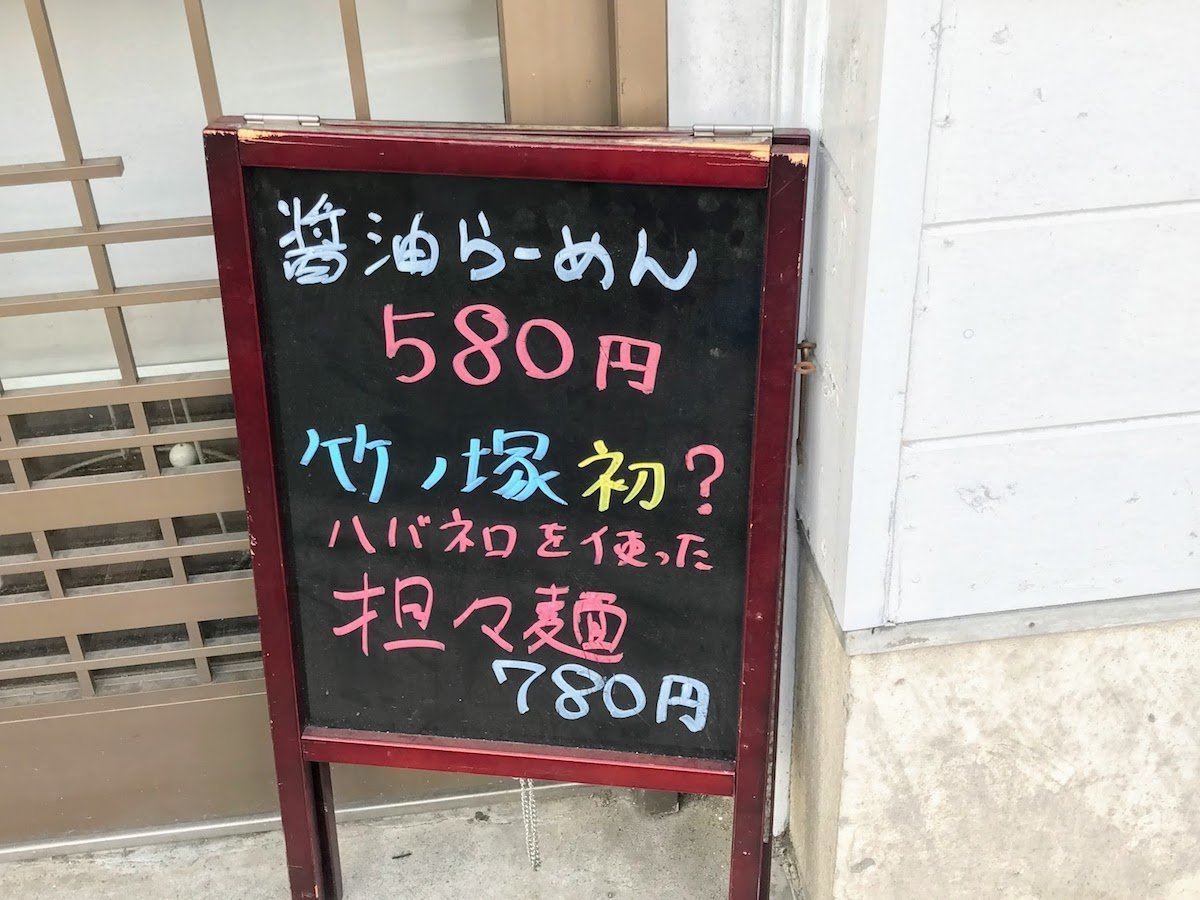 醤油らーめん
580円
竹ノ塚初?
ハバネロを使った
担々麺
780円